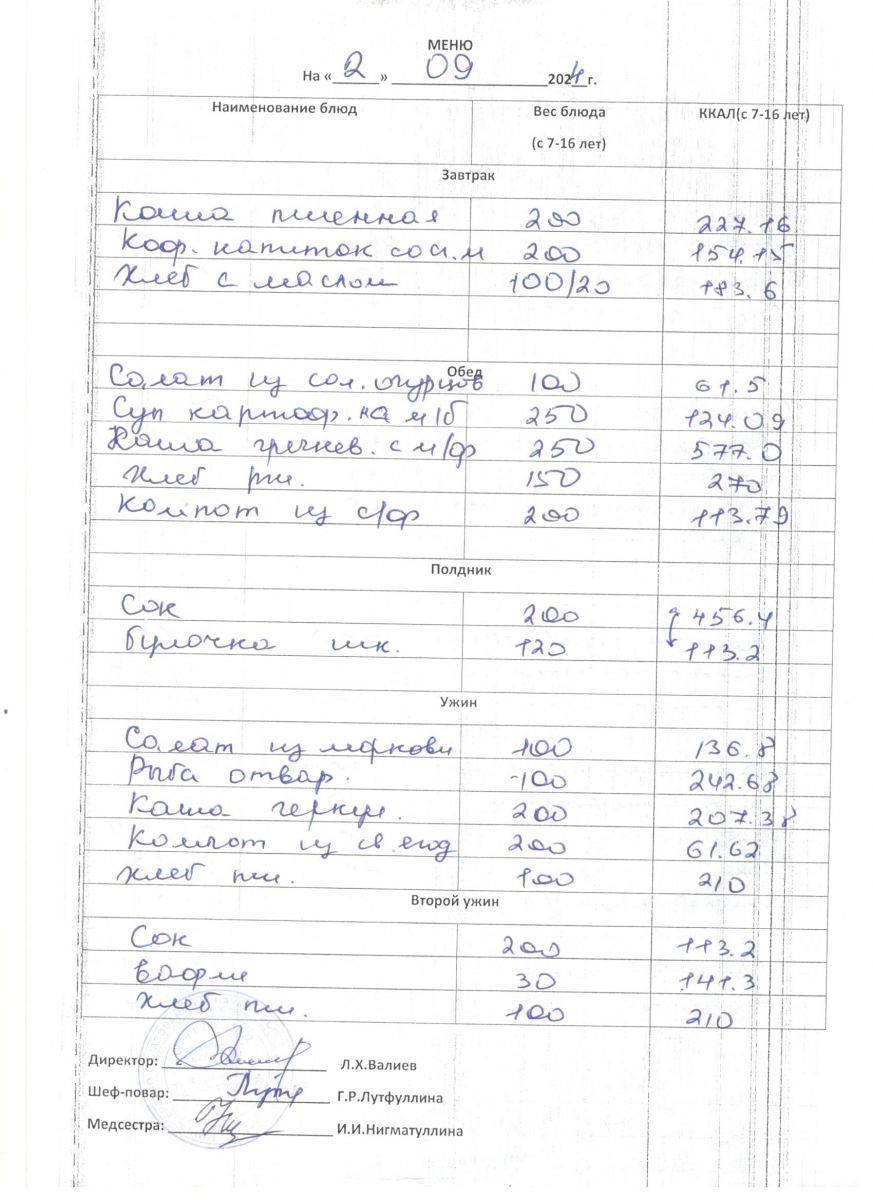 МЕНЮ
На «2» 09 2024 г.
Наименование блюд Вес блюда (с 7-16 лет) ККАЛ(с 7-16 лет)
Завтрак
Каша пшенная 200 227.16
Коф. напиток со сг.м 200 154.15
Хлеб с маслом 100/20 183.6
Обед
Салат из сол. огурцов 100 61.5
Суп картоф. на м/б 250 124.09
Каша гречнев. с м/ф 250 577.0
Хлеб рж. 150 270
Компот из с/ф 200 113.79
Полдник
Сок 200 456.4
Булочка шк. 120 113.2
Ужин
Салат из моркови 100 136.8
Рыба отвар. 100 242.68
Каша геркул. 200 207.38
Компот из св. ягод 200 61.62
Хлеб пш. 100 210
Второй ужин
Сок 200 113.2
Вафли 30 141.3
Хлеб пш. 100 210
Директор: Л.Х.Валиев
Шеф-повар: Г.Р.Лутфуллина
Медсестра: И.И.Нигматуллина